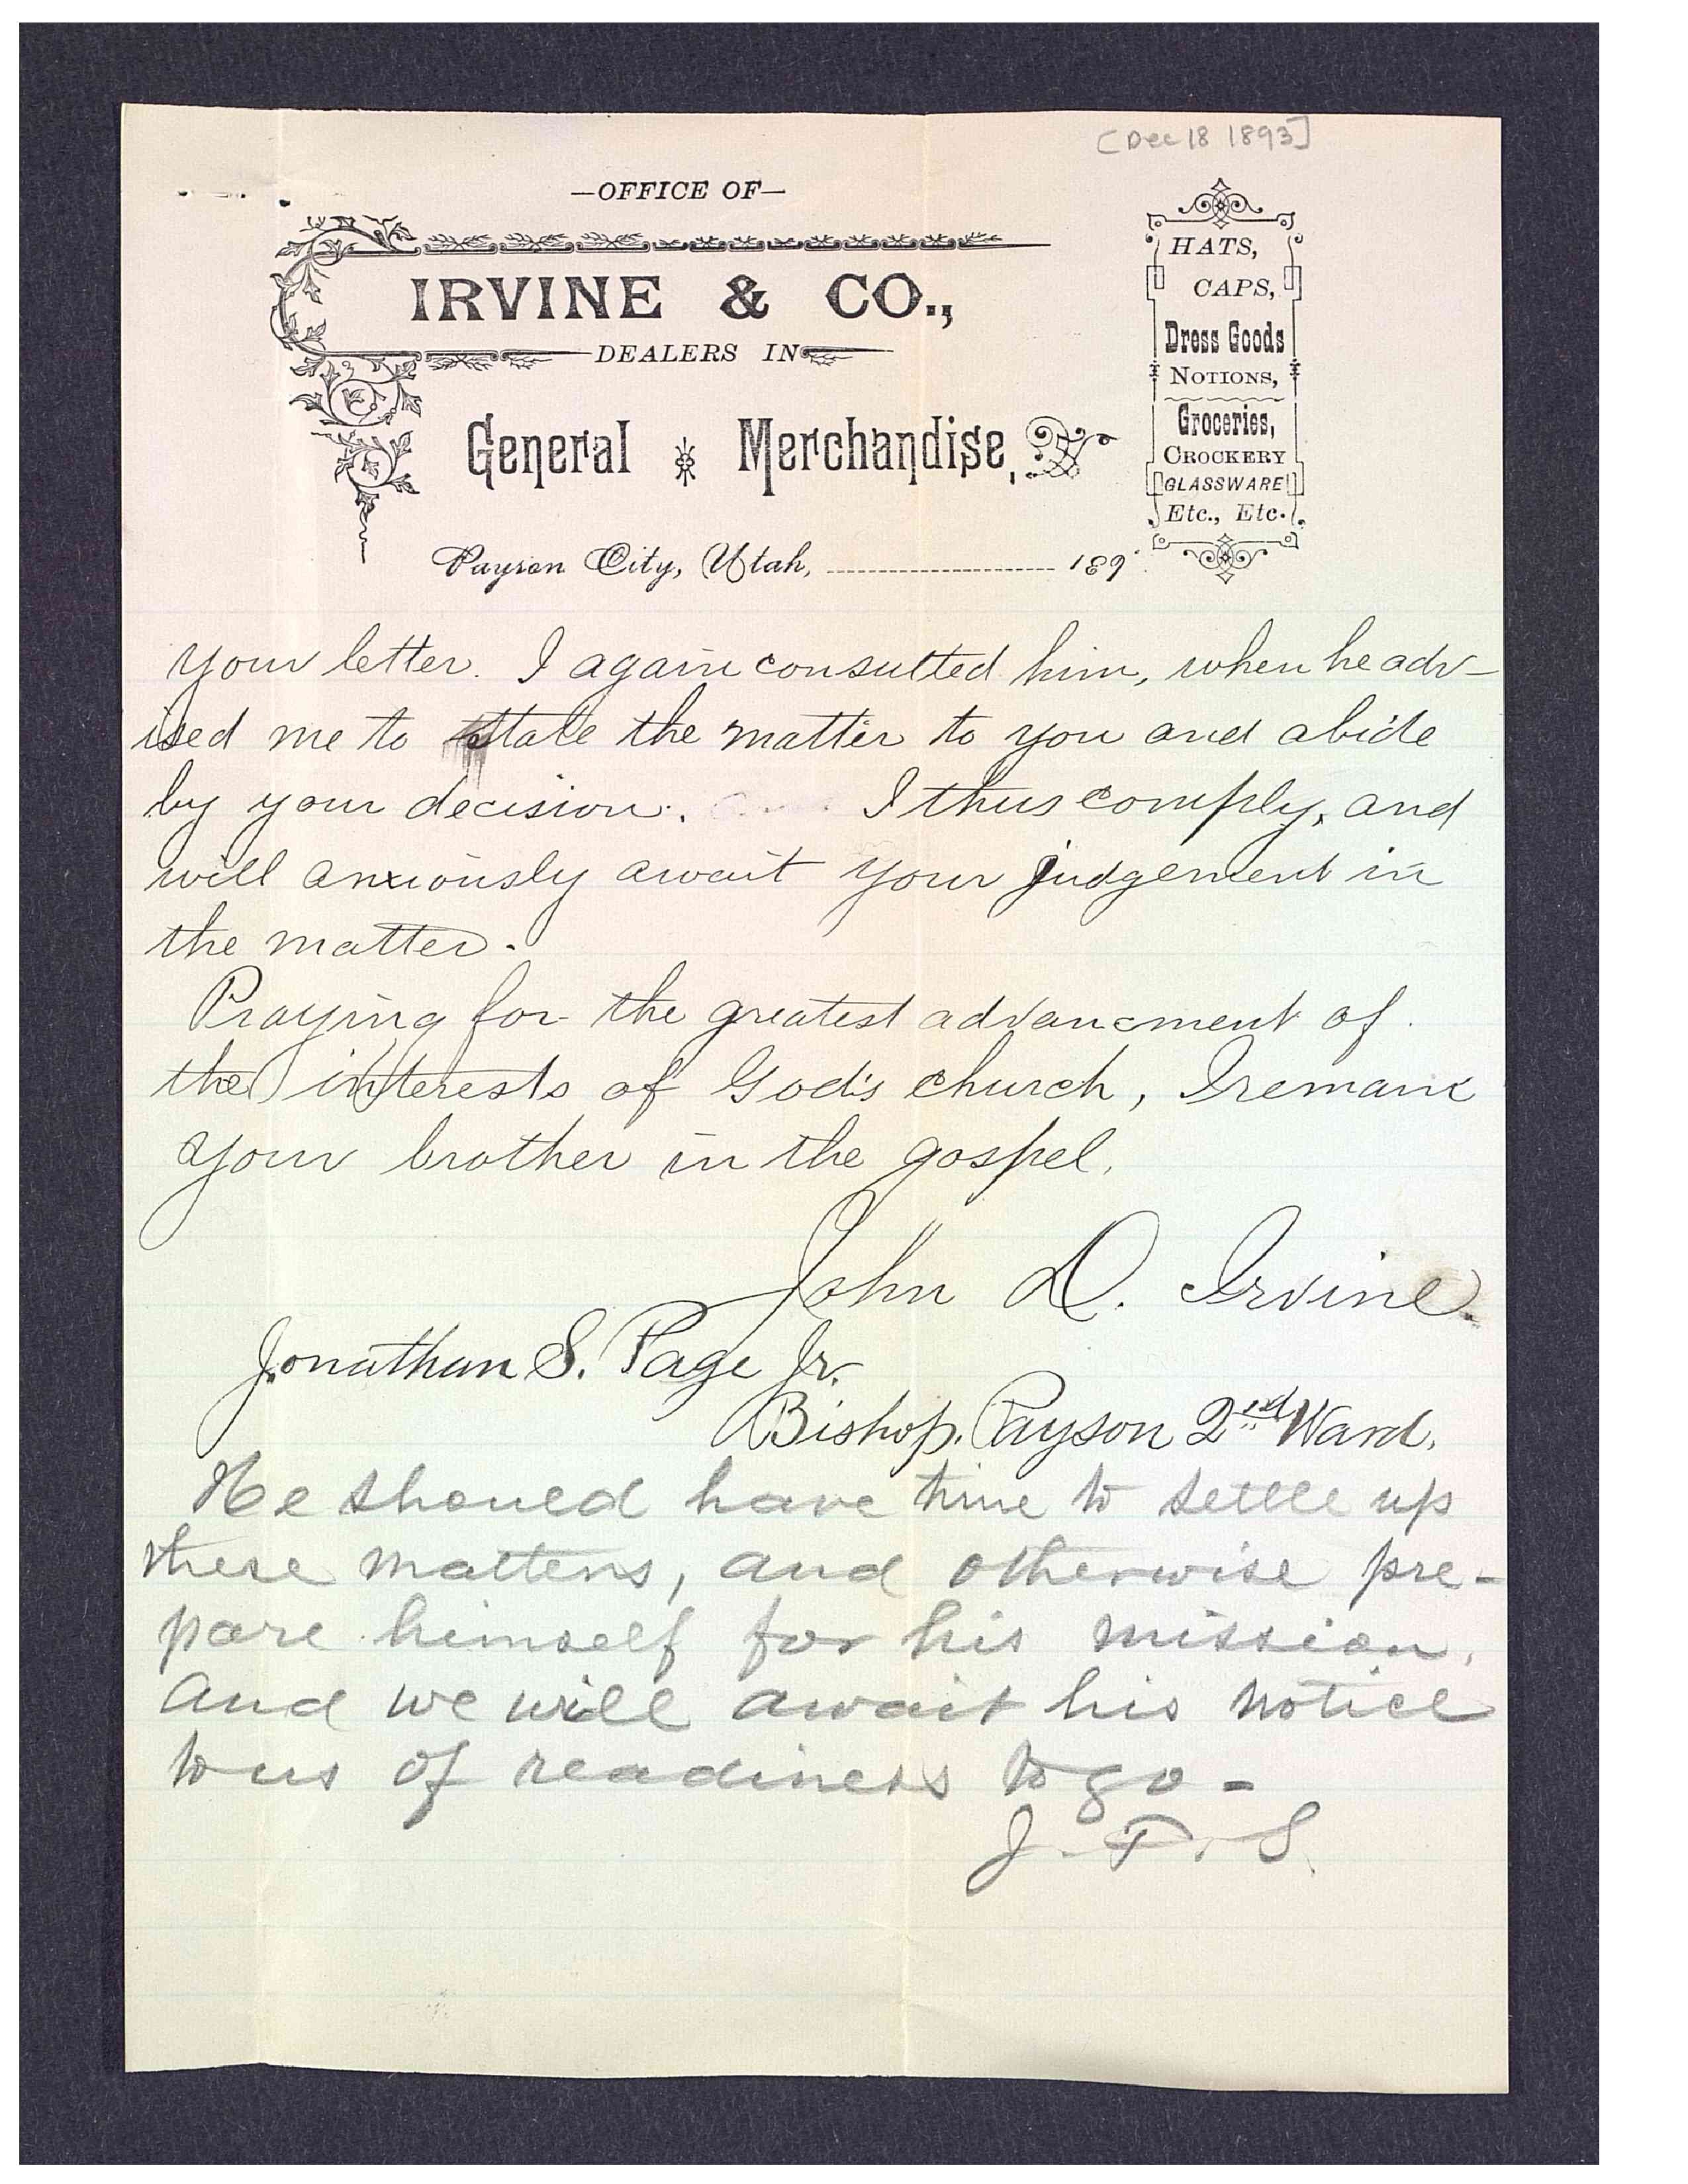 [Dec 18 1893]
—OFFICE OF—
IRVINE & CO.,
DEALERS IN
General Merchandise,
Payson City, Utah, 189
HATS,
CAPS,
Dress Goods
NOTIONS,
Groceries,
CROCKERY
GLASSWARE
Etc., Etc.
your letter. I again consulted him, when he adv-
ised me to state the matter to you and abide
by your decision. I thus comply, and
will anxiously await your judgement in
the matter.
Praying for the greatest advancment of
the interests of God's church, I remain
your brother in the gospel,
John D. Irvine.
Jonathan S. Page Jr.
Bishop, Payson 2nd Ward.
He should have time to settle up
these matters, and otherwise pre-
pare himself for his mission,
and we will await his notice
to us of readiness to go -
J. F. S.